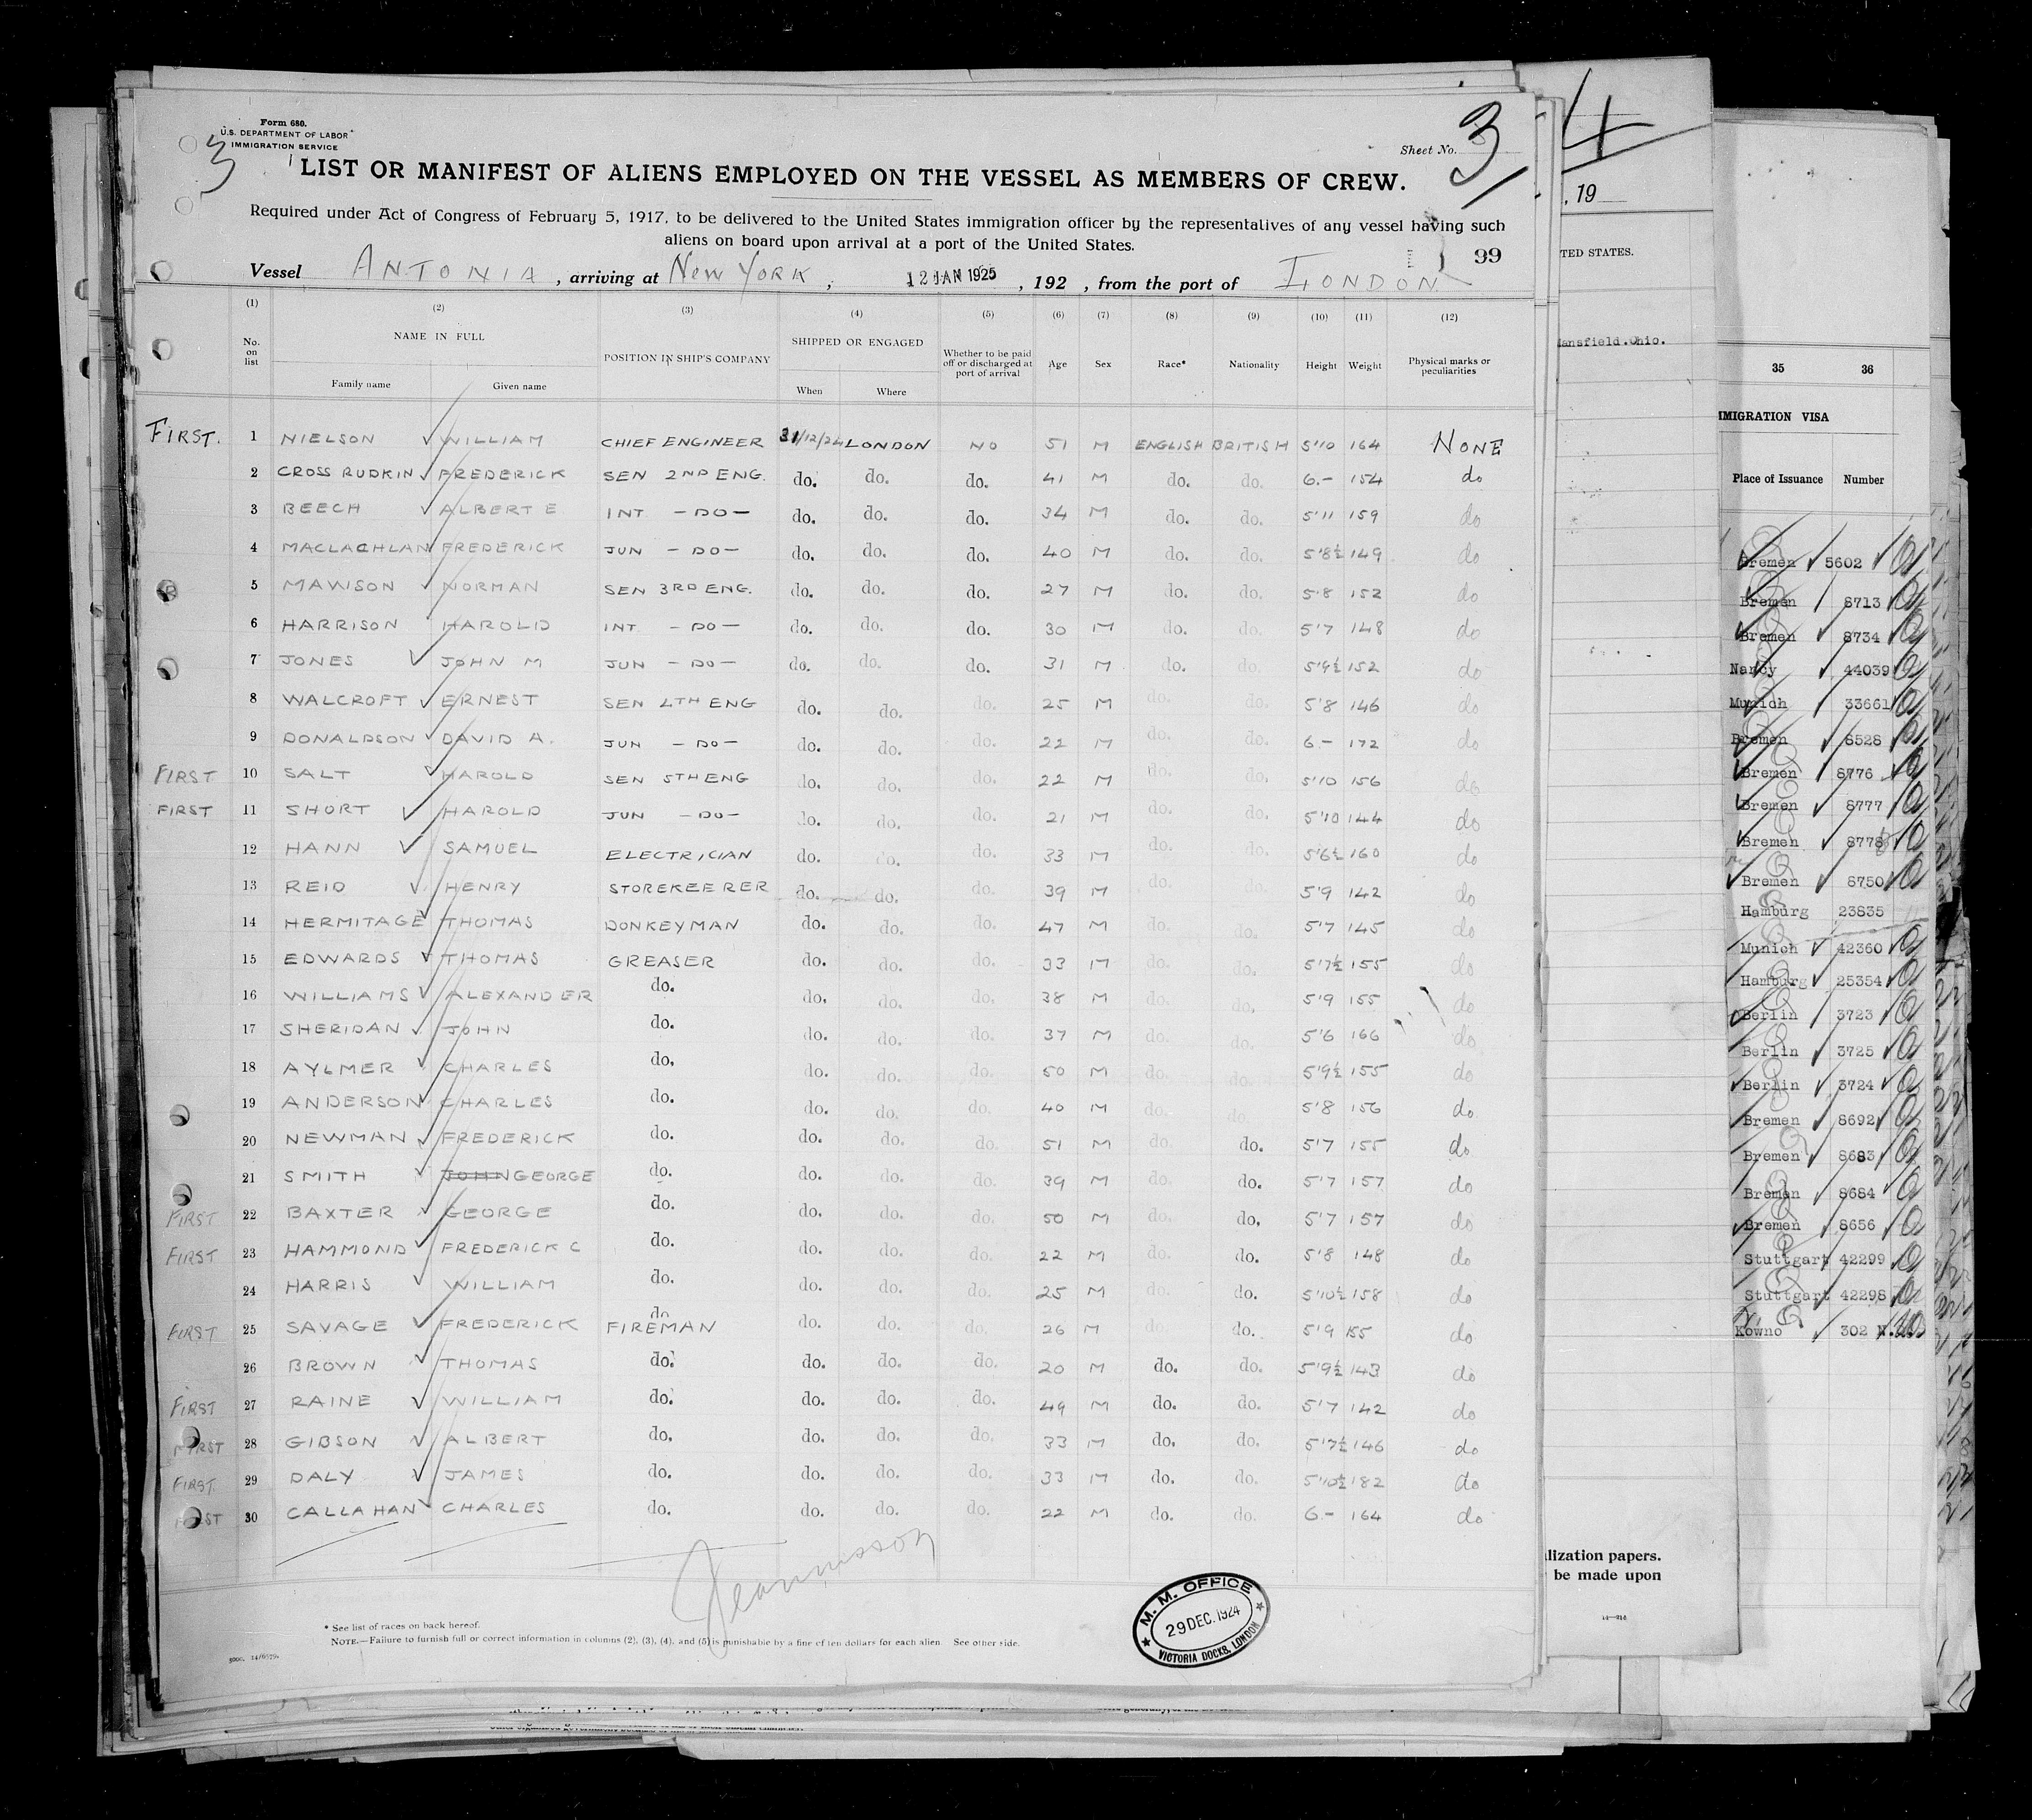 Form 680.
U.S. DEPARTMENT OF LABOR
IMMIGRATION SERVICE
3
Sheet No. 3
4
, 19
LIST OR MANIFEST OF ALIENS EMPLOYED ON THE VESSEL AS MEMBERS OF CREW.
Required under Act of Congress of February 5, 1917, to be delivered to the United States immigration officer by the representatives of any vessel having such
aliens on board upon arrival at a port of the United States.
99
Vessel ANTONIA, arriving at NEW YORK, 12 JAN 1925, 192 , from the port of LONDON
(1) (2) (3) (4) (5) (6) (7) (8) (9) (10) (11) (12)
No. on list NAME IN FULL POSITION IN SHIP'S COMPANY SHIPPED OR ENGAGED Whether to be paid off or discharged at port of arrival Age Sex Race* Nationality Height Weight Physical marks or peculiarities
Family name Given name When Where
FIRST. 1 NIELSON WILLIAM CHIEF ENGINEER 31/12/24 LONDON NO 51 M ENGLISH BRITISH 5'10 164 NONE
2 CROSS RUDKIN FREDERICK SEN 2ND ENG. do. do. do. 41 M do. do. 6.- 154 do
3 BEECH ALBERT E INT - DO - do. do. do. 34 M do. do. 5'11 159 do
4 MACLACHLAN FREDERICK JUN - DO - do. do. do. 40 M do. do. 5'8½ 149 do
5 MAWSON NORMAN SEN 3RD ENG. do. do. do. 27 M do. do. 5'8 152 do
6 HARRISON HAROLD INT - DO - do. do. do. 30 M do. do. 5'7 148 do
7 JONES JOHN M JUN - DO - do. do. do. 31 M do. do. 5'9½ 152 do
8 WALCROFT ERNEST SEN 4TH ENG do. do. do. 25 M do. do. 5'8 146 do
9 DONALDSON DAVID A. JUN - DO - do. do. do. 22 M do. do. 6.- 172 do
FIRST 10 SALT HAROLD SEN 5TH ENG do. do. do. 22 M do. do. 5'10 156 do
FIRST 11 SHORT HAROLD JUN - DO - do. do. do. 21 M do. do. 5'10 144 do
12 HANN SAMUEL ELECTRICIAN do. do. do. 33 M do. do. 5'6½ 160 do
13 REID HENRY STOREKEERER do. do. do. 39 M do. do. 5'9 142 do
14 HERMITAGE THOMAS DONKEYMAN do. do. do. 47 M do. do. 5'7 145 do
15 EDWARDS THOMAS GREASER do. do. do. 33 M do. do. 5'7½ 155 do
16 WILLIAMS ALEXANDER do. do. do. do. 38 M do. do. 5'9 155 do
17 SHERIDAN JOHN do. do. do. do. 37 M do. do. 5'6 166 do
18 AYLMER CHARLES do. do. do. do. 50 M do. do. 5'9½ 155 do
19 ANDERSON CHARLES do. do. do. do. 40 M do. do. 5'8 156 do
20 NEWMAN FREDERICK do. do. do. do. 51 M do. do. 5'7 155 do
21 SMITH JOHN GEORGE do. do. do. do. 39 M do. do. 5'7 157 do
FIRST 22 BAXTER GEORGE do. do. do. do. 50 M do. do. 5'7 157 do
FIRST 23 HAMMOND FREDERICK C do. do. do. do. 22 M do. do. 5'8 148 do
24 HARRIS WILLIAM do. do. do. do. 25 M do. do. 5'10½ 158 do
FIRST 25 SAVAGE FREDERICK do FIREMAN do. do. do. 26 M do. do. 5'9 155 do
26 BROWN THOMAS do. do. do. do. 20 M do. do. 5'9½ 143 do
FIRST 27 RAINE WILLIAM do. do. do. do. 49 M do. do. 5'7 142 do
FIRST 28 GIBSON ALBERT do. do. do. do. 33 M do. do. 5'7½ 146 do
FIRST 29 DALY JAMES do. do. do. do. 33 M do. do. 5'10½ 182 do
FIRST 30 CALLAHAN CHARLES do. do. do. do. 22 M do. do. 6.- 164 do
M. M. OFFICE
29 DEC. 1924
VICTORIA DOCKS, LONDON
* See list of races on back hereof.
NOTE.—Failure to furnish full or correct information in columns (2), (3), (4), and (5) is punishable by a fine of ten dollars for each alien. See other side.
TED STATES.
ansfield.Ohio.
lization papers.
be made upon
35 36
MIGRATION VISA
Place of Issuance Number
Bremen 5602
Bremen 8713
Bremen 8734
Nancy 44039
Munich 33661
Bremen 8528
Bremen 8776
Bremen 8777
Bremen 8778
Bremen 8750
Hamburg 23835
Munich 42360
Hamburg 25354
Berlin 3723
Berlin 3725
Berlin 3724
Bremen 8692
Bremen 8683
Bremen 8684
Bremen 8656
Stuttgart 42299
Stuttgart 42298
Kowno 302